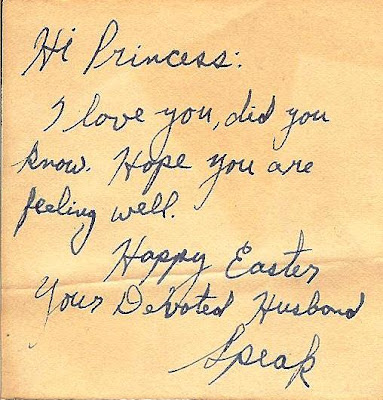 Hi Princess:
I love you, did you
know. Hope you are
feeling well.
Happy Easter
Your Devoted Husband
Speak